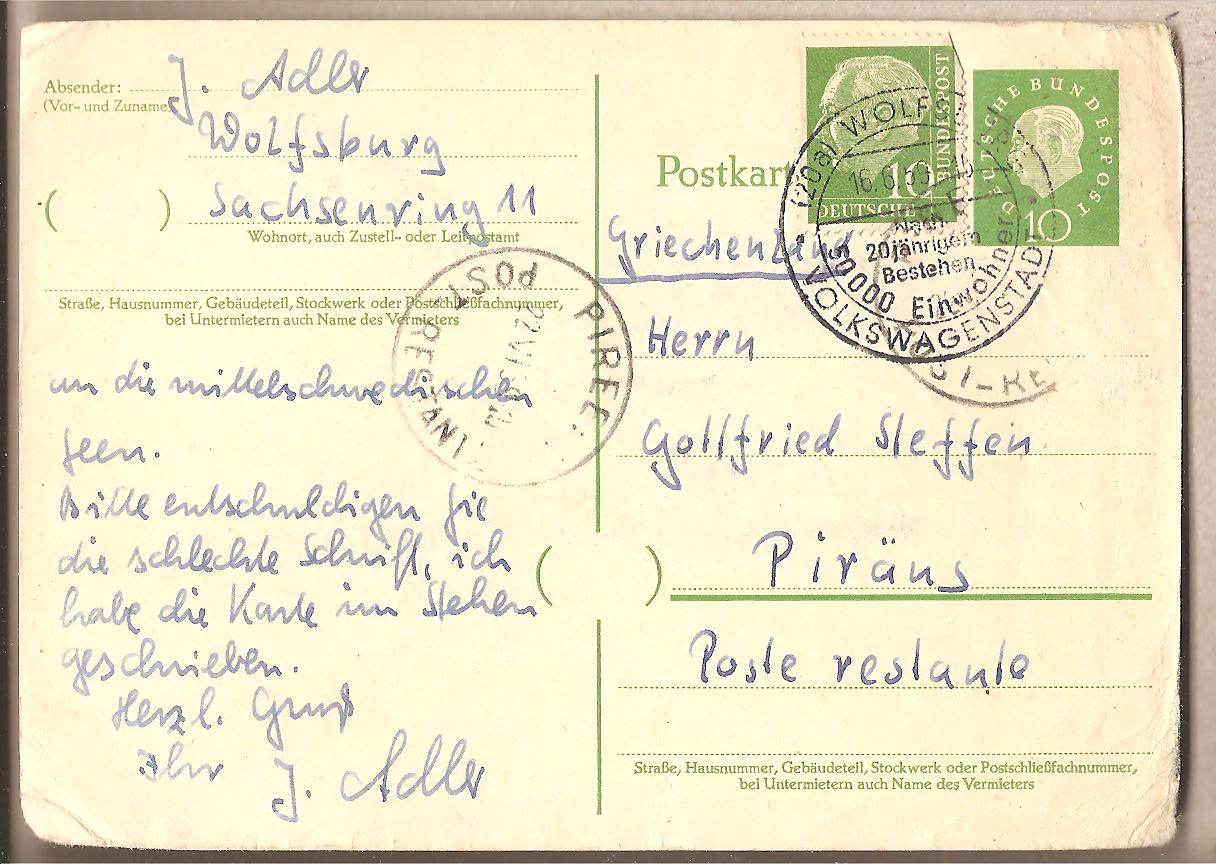 Absender: J. Adler
(Vor- und Zuname)
Wolfsburg
Sachsenring 11
Wohnort, auch Zustell- oder Leitpostamt
Straße, Hausnummer, Gebäudeteil, Stockwerk oder Postschließfachnummer,
bei Untermietern auch Name des Vermieters
an die mittelschwedischen
Seen.
Bitte entschuldigen Sie
die schlechte Schrift, ich
habe die Karte im Stehen
geschrieben.
Herzl. Gruß
Ihr
J. Adler
POSTE RESTANTE
PIREE
Postkarte
10
DEUTSCHE
BUNDESPOST
DEUTSCHE BUNDESPOST
10
(20a) WOLFSBURG
16.6.59
Nach
20jährigem
Bestehen
50000 Einwohner
VOLKSWAGENSTADT
Griechenland
Herrn
Gottfried Steffen
Piräus
Poste restante
Straße, Hausnummer, Gebäudeteil, Stockwerk oder Postschließfachnummer,
bei Untermietern auch Name des Vermieters